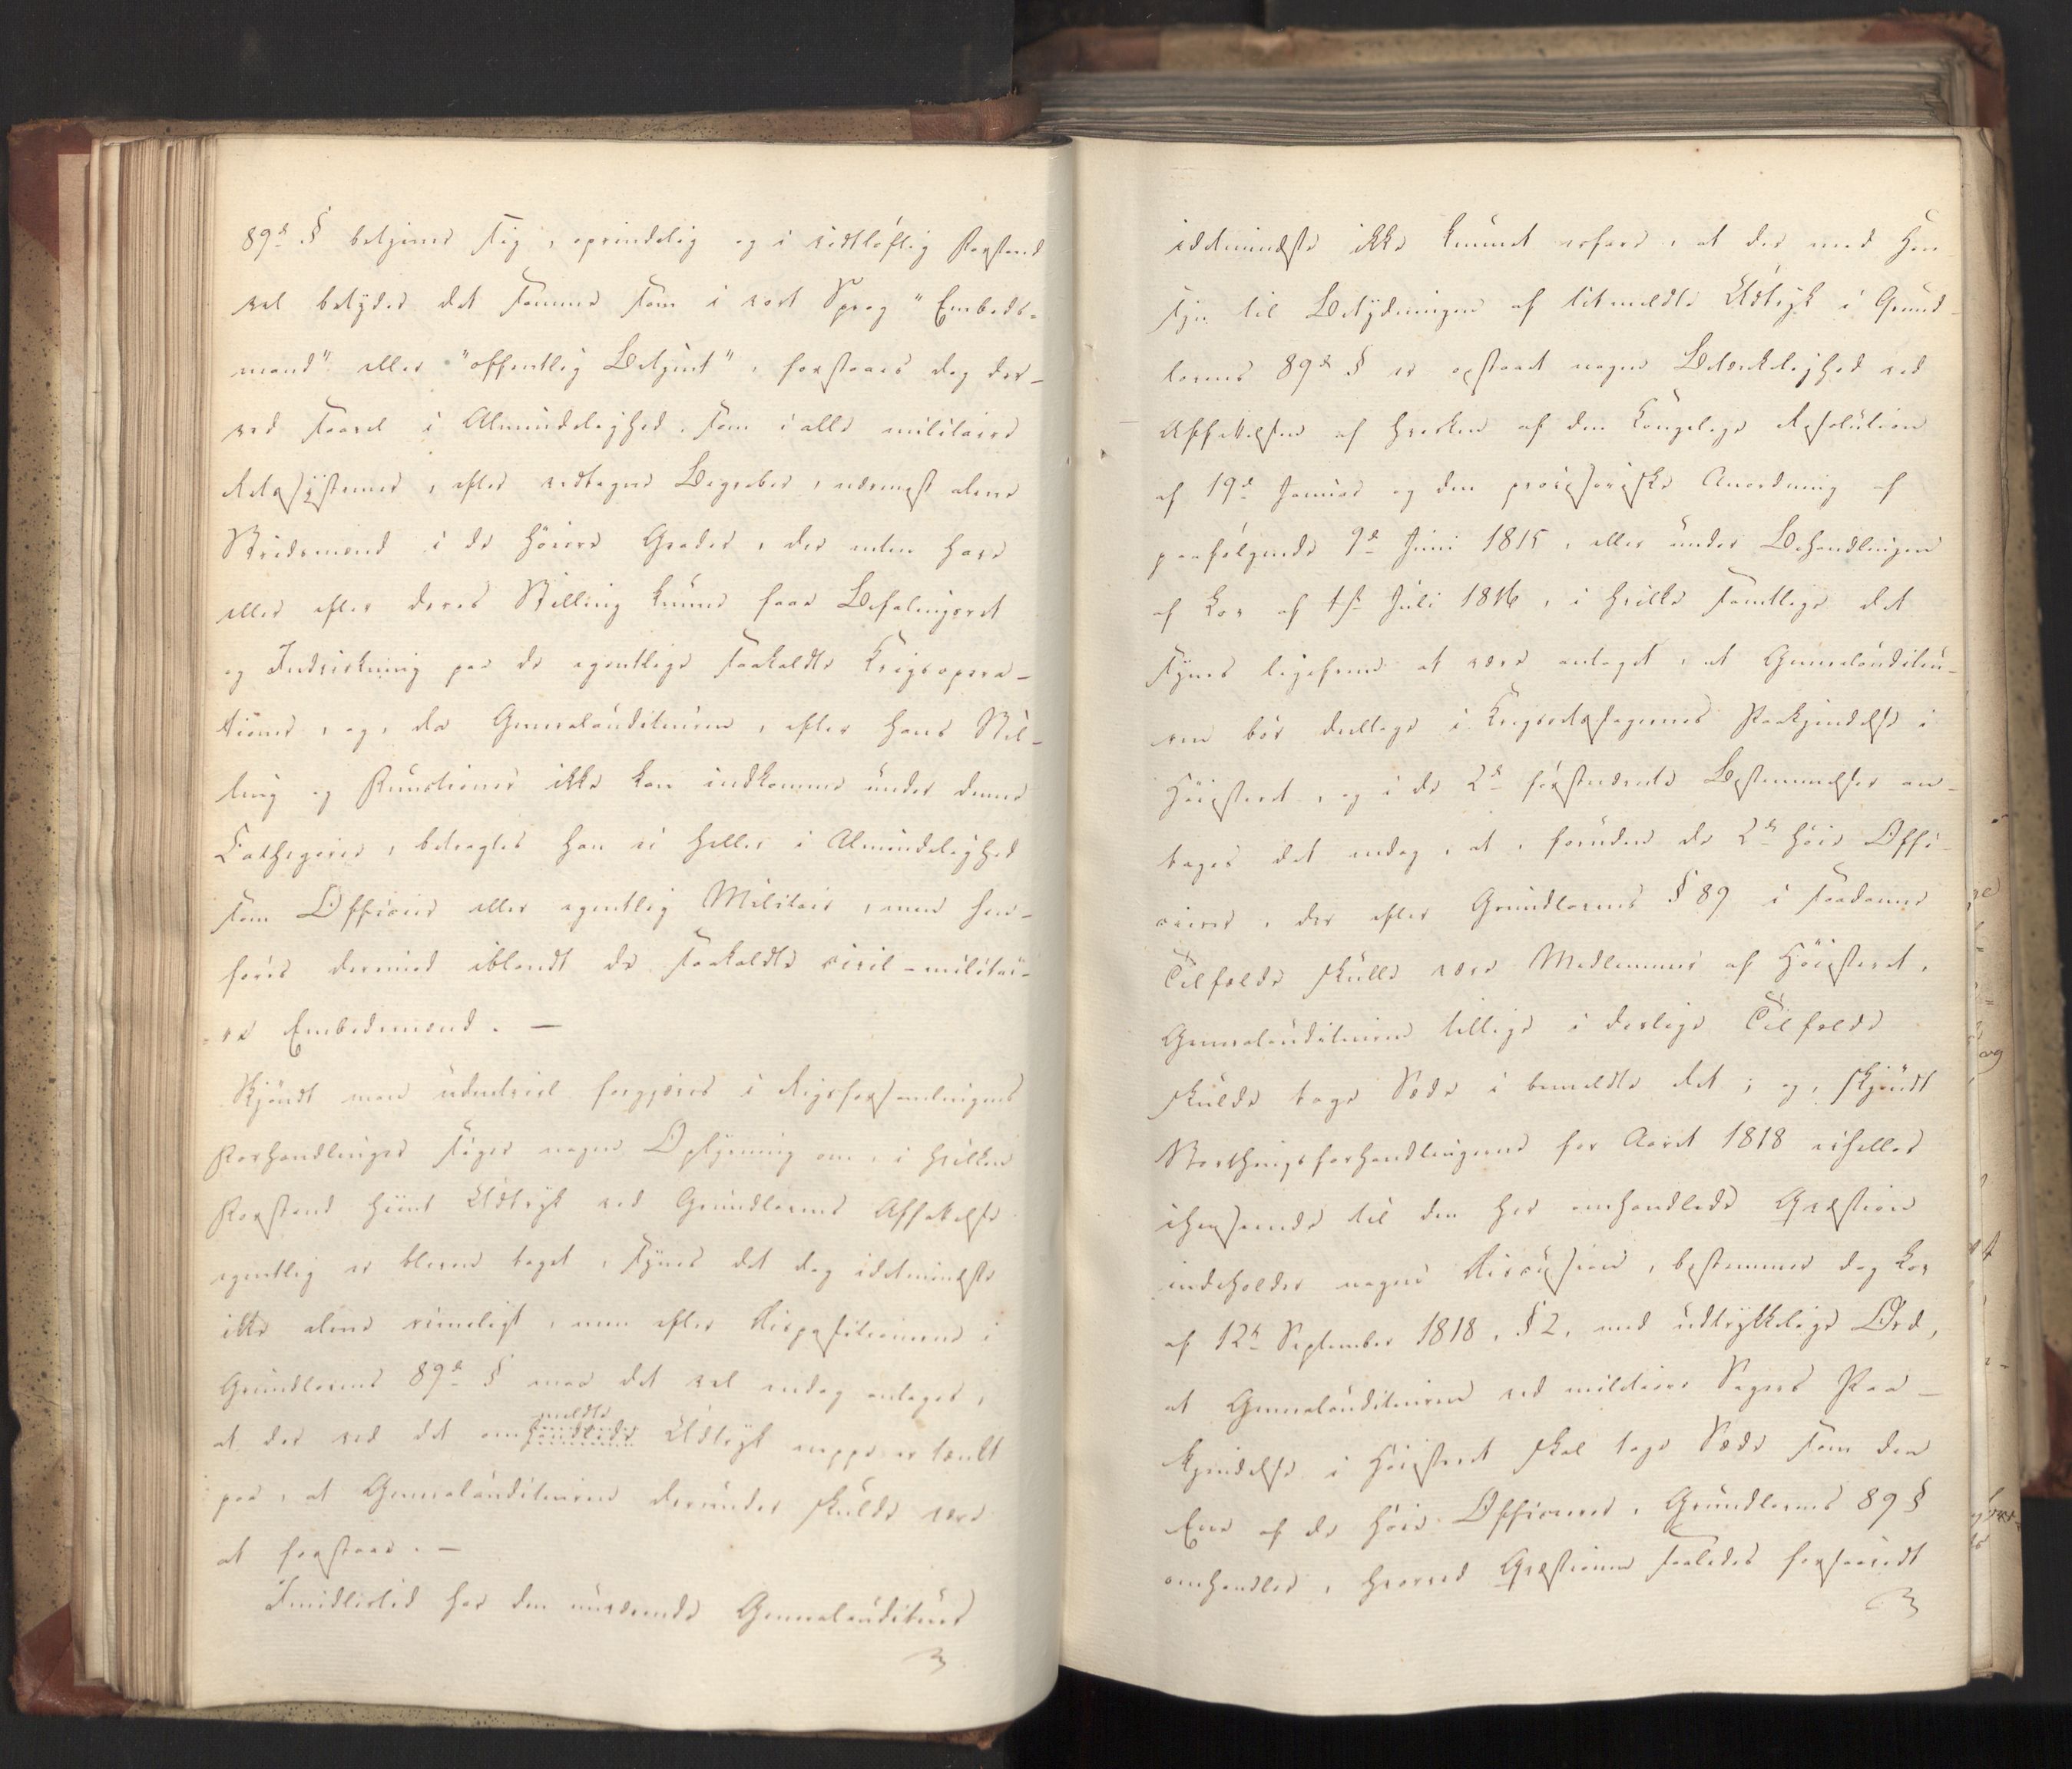 89de § betjener sig, oprindelig og i vidtløftig Forstand
vel betyder det samme som i vort Sprog "Embeds-
mand" eller "offentlig Betjent", forstaaes dog der-
ved saavel i Almindelighed, som i alle militaire
Retssystemer, efter vedtagne Begreber, nærmest alene
Stridsmænd i de høiere Grader, der enten have
eller efter deres Stilling kunne faae Befalingsret
og Indvirkning paa de egentlige saakaldte Krigsopera-
tioner, og, da Generalauditeuren, efter hans Stil-
ling og Functioner ikke kan indkomme under denne
Cathegorie, betragtes han ei heller i Almindelighed
som Officier eller egentlig Militair, men hen-
føres derimod iblandt de saakaldte civil-militai-
re Embedsmænd. —
Skjøndt man udentvivl forgjeves i Rigsforsamlingens
Forhandlinger søger nogen Oplysning om, i hvilken
Forstand hiint Udtryk ved Grundlovens Affattelse
egentlig er bleven taget, synes det dog idetmindste
ikke alene rimeligt, men efter Dispositionerne i
Grundlovens 89de § maa det vel endog antages,
at der ved det omhandlede Udtryk neppe er tænkt
meldte
paa, at Generalauditeuren derunder skulde være
at forstaae. —
Imidlertid har den nuværende Generalauditeur
idetmindste ikke kunnet erfare, at der med Hen-
syn til Betydningen af bemeldte Udtryk i Grund-
lovens 89de § er opstaaet nogen Betænkelighed ved
Affattelsen af hverken af den Kongelige Resolution
af 19de Januar og den provisoriske Anordning af
paafølgende 9de Juni 1815, eller under Behandlingen
af Lov af 1ste Juli 1816, i hvilke samtlige det
synes ligefrem at være antaget, at Generalauditeu-
ren bør deeltage i Krigsretssagernes Paakjendelse i
Høiesteret, og i de 2de førstnævnte Bestemmelser an-
tages det endog, at, foruden de 2de høie Offi-
cierer, der efter Grundlovens § 89 i saadanne
Tilfælde skulle være Medlemmer af Høiesteret,
Generalauditeuren tillige i deslige Tilfælde
skulde tage Sæde i bemeldte Ret; og, skjøndt
Storthingsforhandlingerne for Aaret 1818 eiheller
ihenseende til den her omhandlede Qvæstion
indeholder nogen Discussion, bestemmer dog Lov
af 12te September 1818, § 2, med udtrykkelige Ord,
at Generalauditeuren ved militaire Sagers Paa-
kjendelse i Høiesteret skal tage Sæde som den
Ene af de høie Officierer, Grundlovens 89 §
omhandler, hvorved Qvæstionen saaledes forsaavidt